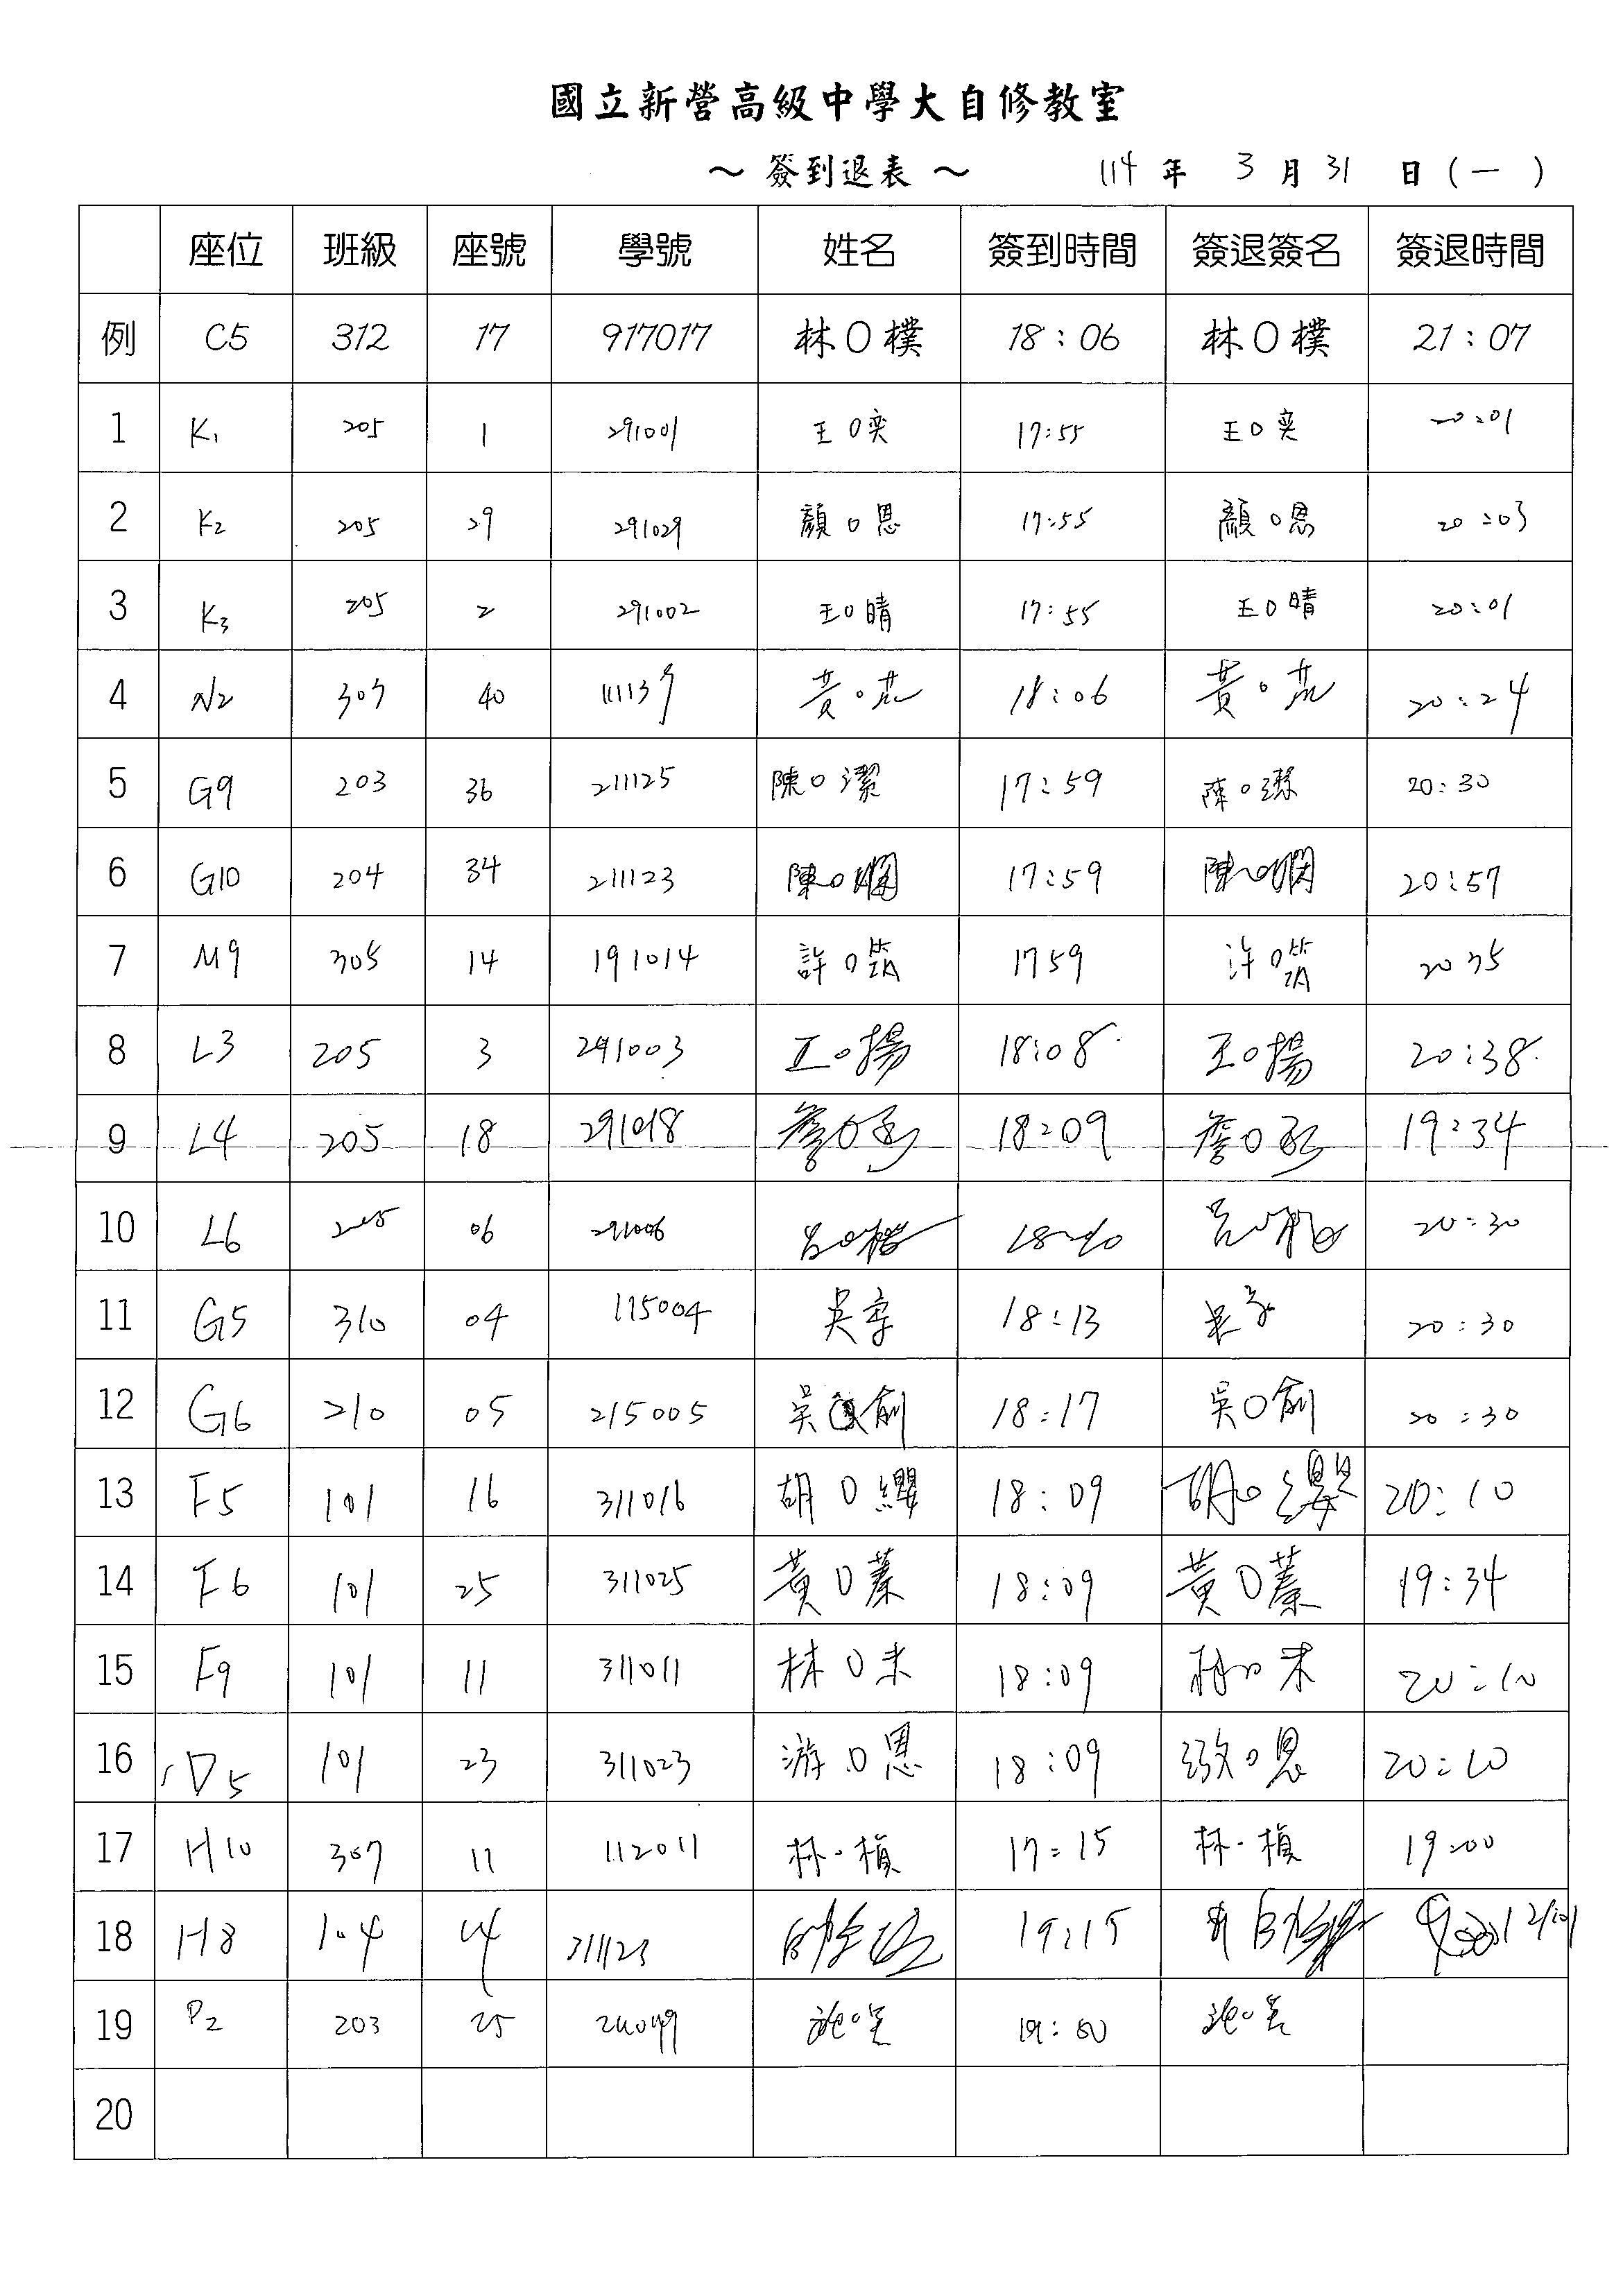 國立新營高級中學大自修教室
～ 簽到退表 ～ 114 年 3 月 31 日 ( 一 )
座位 班級 座號 學號 姓名 簽到時間 簽退簽名 簽退時間
例 C5 312 17 917017 林O樸 18:06 林O樸 21:07
1 K1 205 1 291001 王O奕 17:55 王O奕 20:01
2 K2 205 29 291029 顏O恩 17:55 顏O恩 20:03
3 K3 205 2 291002 王O晴 17:55 王O晴 20:01
4 N2 307 40 111137 黃O 18:06 黃O 20:24
5 G9 203 36 211125 陳O潔 17:59 陳O潔 20:30
6 G10 204 34 211123 陳O嫻 17:59 陳O嫻 20:57
7 M9 305 14 191014 許O筑 1759 許O筑 2035
8 L3 205 3 291003 王O揚 18:08 王O揚 20:38
9 L4 205 18 291018 詹O 18:09 詹O 19:34
10 L6 205 06 291006 呂O楷 呂O 20:30
11 G5 310 04 115004 吳 18:13 吳 20:30
12 G6 210 05 215005 吳O俞 18:17 吳O俞 20:30
13 F5 101 16 311016 胡O纓 18:09 胡O纓 20:10
14 F6 101 25 311025 黃O蓁 18:09 黃O蓁 19:34
15 F9 101 11 311011 林O末 18:09 林O末 20:10
16 D5 101 23 311023 游O恩 18:09 游O恩 20:10
17 H10 307 11 112011 林O楨 17:15 林O楨 19:00
18 H8 104 311123 19:15
19 P2 203 25 施O 施O
20